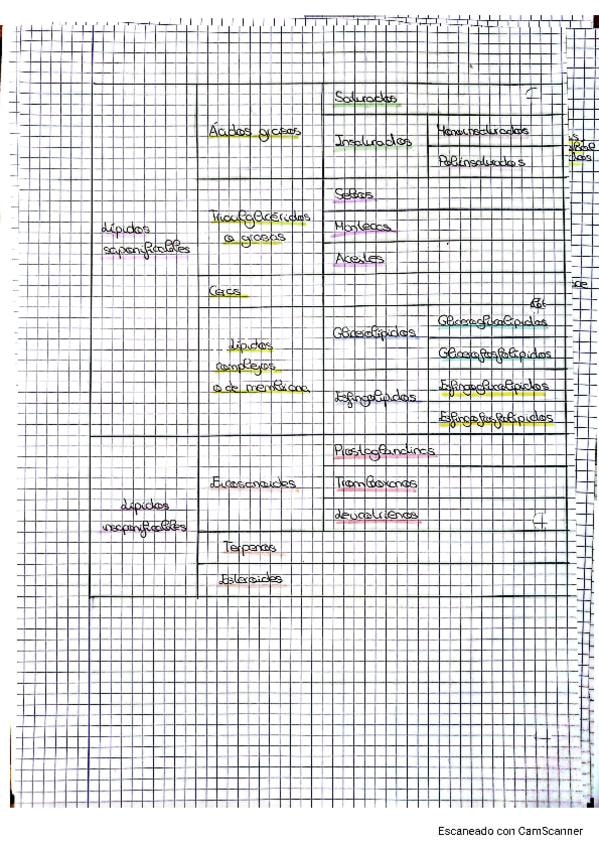 Saturados
Ácidos grasos
Insaturados
Monoinsaturados
Poliinsaturados
Sebos
Lípidos
saponificables
Triacilglicéridos
o grasas
Mantecas
Aceites
Ceras
Lípidos
complejos
o de membrana
Glicerolípidos
Gliceroglucolípidos
Glicerofosfolípidos
Esfingolípidos
Esfingoglucolípidos
Esfingofosfolípidos
Lípidos
insaponificables
Eicosanoides
Prostaglandinas
Tromboxanos
Leucotrienos
Terpenos
Esteroides
Escaneado con CamScanner